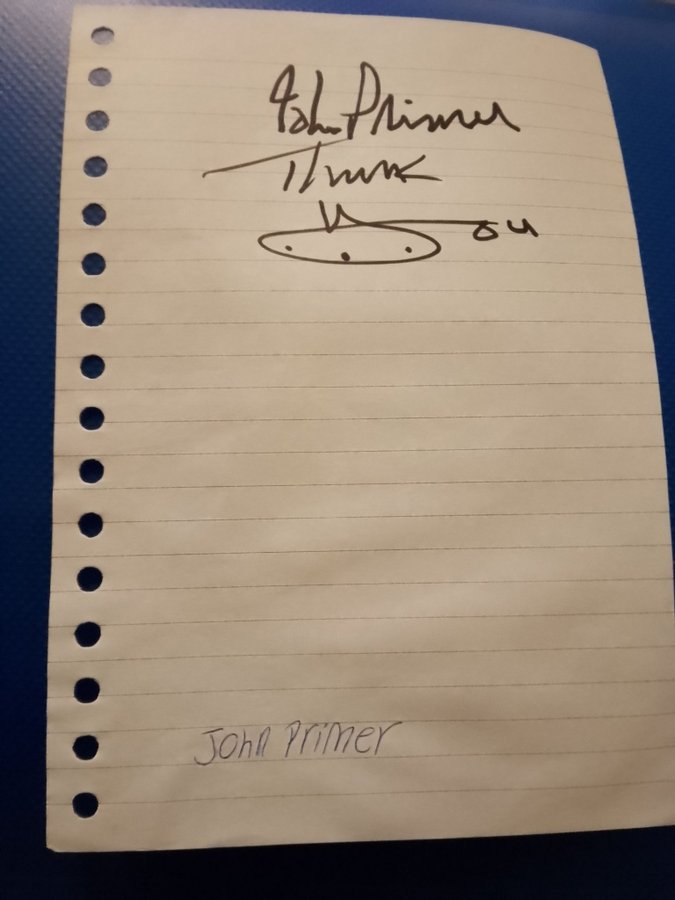 John Primer
Thank
you
John Primer